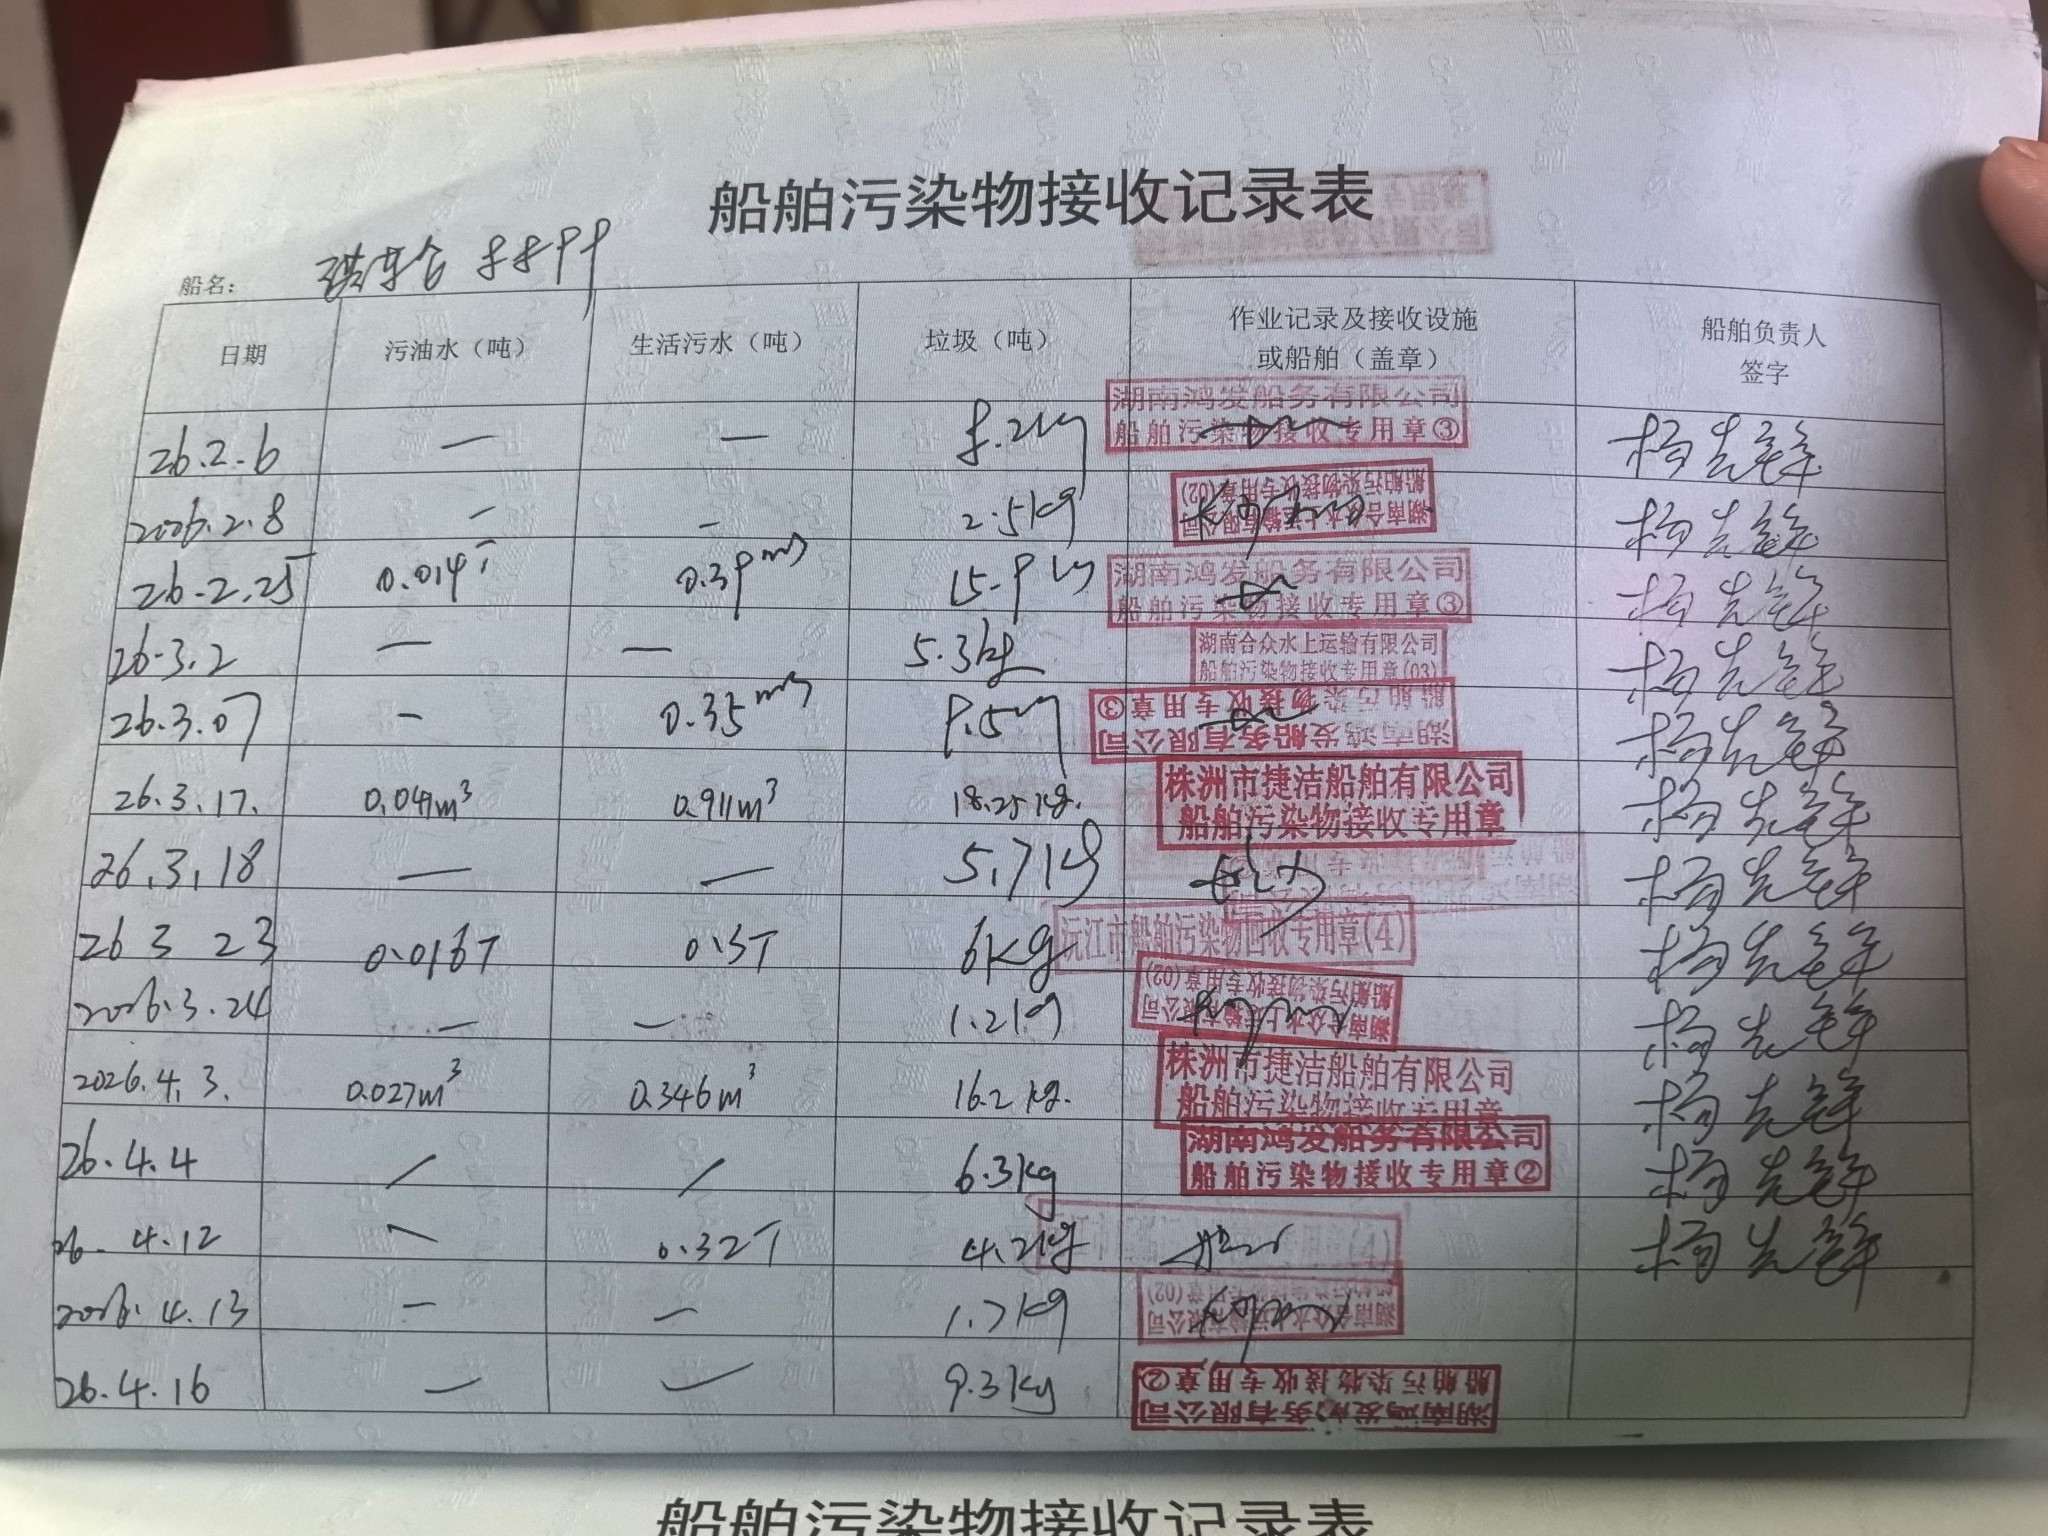 船舶污染物接收记录表
船名：
日期 污油水（吨） 生活污水（吨） 垃圾（吨） 作业记录及接收设施或船舶（盖章） 船舶负责人签字
26.2.6 — — .2kg 湖南鸿发船务有限公司 船舶污染物接收专用章③ 杨先锋
2026.2.8 — — 2.5kg 湖南合众水上运输有限公司 船舶污染物接收专用章(02) 杨先锋
26.2.25 0.014T 0.39m3 15.9kg 湖南鸿发船务有限公司 船舶污染物接收专用章③ 杨先锋
26.3.2 — — 5.3kg 湖南合众水上运输有限公司 船舶污染物接收专用章(03) 杨先锋
26.3.07 — 0.35m3 9.5kg 湖南鸿发船务有限公司 船舶污染物接收专用章③ 杨先锋
26.3.17. 0.041m³ 0.911m³ 18.25kg. 株洲市捷洁船舶有限公司 船舶污染物接收专用章 杨先锋
26.3.18 — — 5.7kg 长沙 杨先锋
26 3 23 0.016T 0.3T 6kg 沅江市船舶污染物回收专用章(4) 杨先锋
2026.3.24 — — 1.2kg 湖南合众水上运输有限公司 船舶污染物接收专用章(02) 杨先锋
2026.4.3. 0.027m³ 0.346m³ 16.2kg. 株洲市捷洁船舶有限公司 船舶污染物接收专用章 杨先锋
26.4.4 / / 6.3kg 湖南鸿发船务有限公司 船舶污染物接收专用章② 杨先锋
26. 4.12 — 0.32T 4.2kg (4) 杨先锋
2026.4.13 — — 1.7kg 湖南合众水上运输有限公司 船舶污染物接收专用章(02)
26.4.16 — — 9.3kg 湖南鸿发船务有限公司 船舶污染物接收专用章②
船舶污染物接收记录表